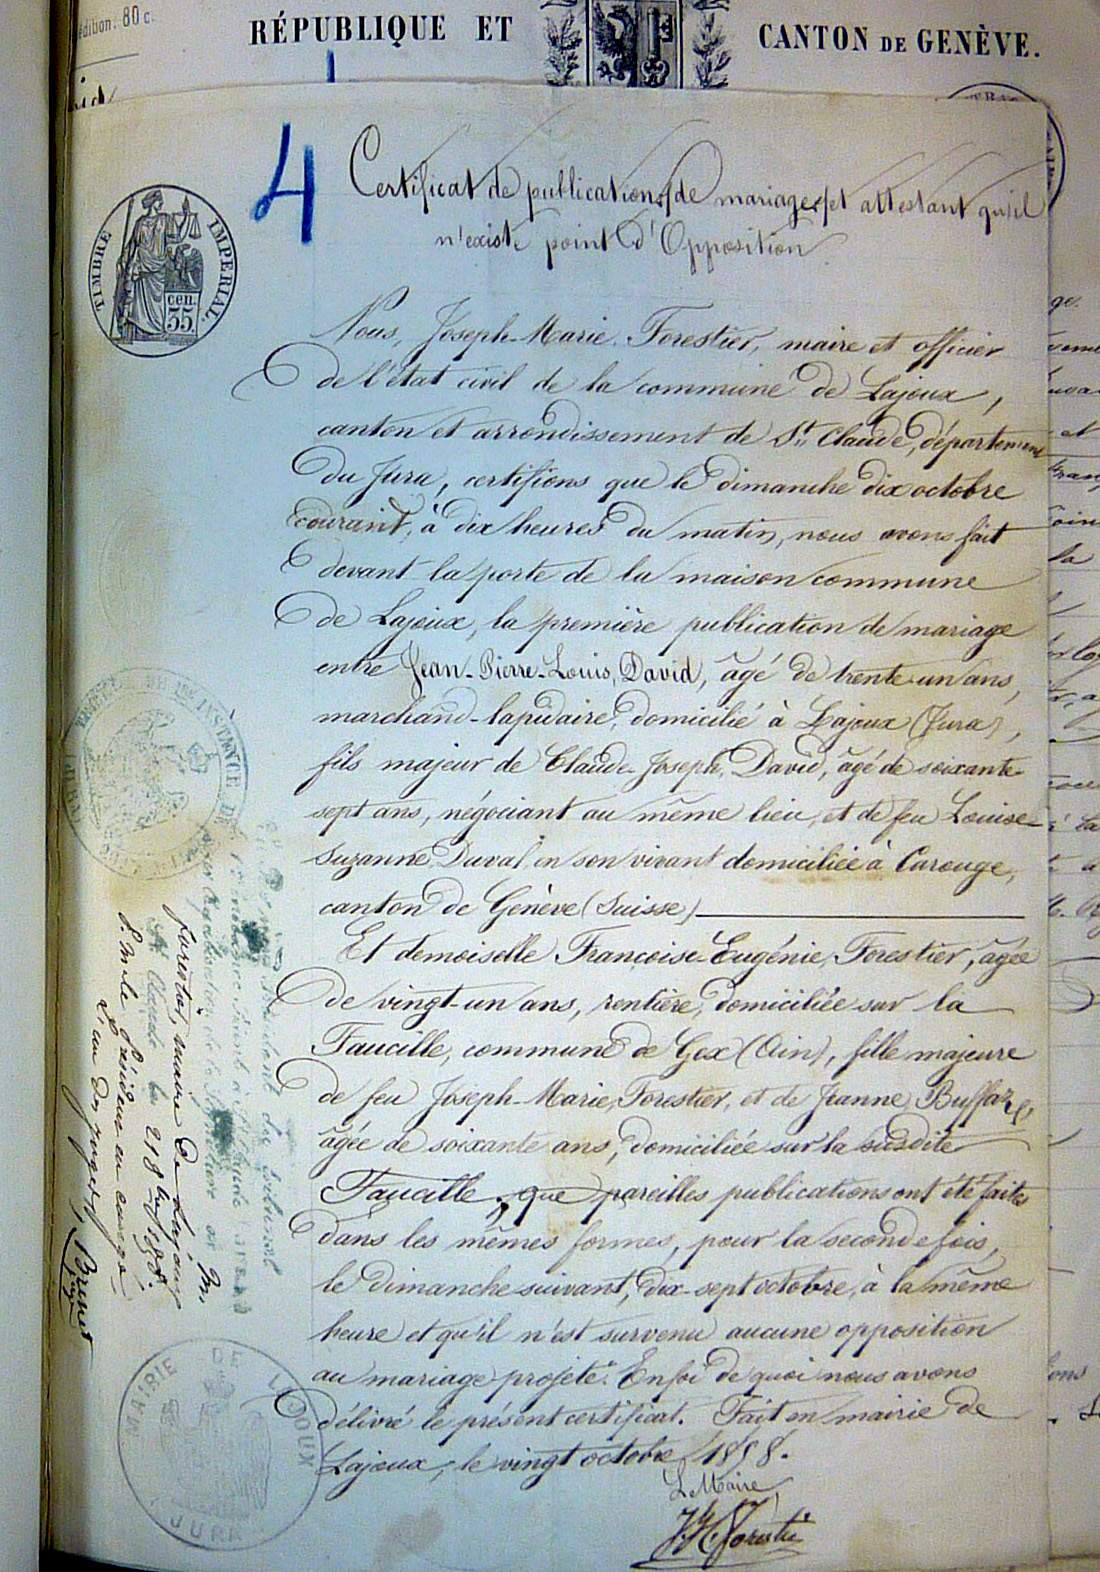 édition. 80 c.
RÉPUBLIQUE ET CANTON DE GENÈVE.
4
Certificat de publications de mariage et attestant qu'il
n'existe point d'Opposition
TIMBRE IMPÉRIAL.
cen.
35
Nous, Joseph-Marie Forestier, maire et officier
de l'état civil de la commune de Lajoux,
canton et arrondissement de St. Claude, département
du Jura, certifions que le dimanche dix octobre
courant, à dix heures du matin, nous avons fait
devant la porte de la maison commune
de Lajoux, la première publication de mariage
entre Jean-Pierre-Louis, David, âgé de trente-un ans,
marchand-lapidaire, domicilié à Lajoux (Jura),
fils majeur de Claude-Joseph, David, âgé de soixante-
sept ans, négociant au même lieu, et de feu Louise-
Suzanne, Duval, en son vivant domiciliée à Carouge,
canton de Genève (Suisse)
Et demoiselle Françoise-Eugénie, Forestier, âgée
de vingt-un ans, rentière, domiciliée sur la
Faucille, commune de Gex (Ain), fille majeure
de feu Joseph-Marie, Forestier, et de Jeanne, Buffaz,
âgée de soixante ans, domiciliée sur la susdite
Faucille, que pareilles publications ont été faites
dans les mêmes formes, pour la seconde fois,
le dimanche suivant, dix-sept octobre, à la même
heure et qu'il n'est survenu aucune opposition
au mariage projeté. En foi de quoi nous avons
délivré le présent certificat. Fait en mairie de
Lajoux, le vingt octobre 1858.
Le Maire,
J. M. Forestier
forestier, maire de Lajoux
St Claude le 21 8bre 1858.
MAIRIE DE LAJOUX
JURA